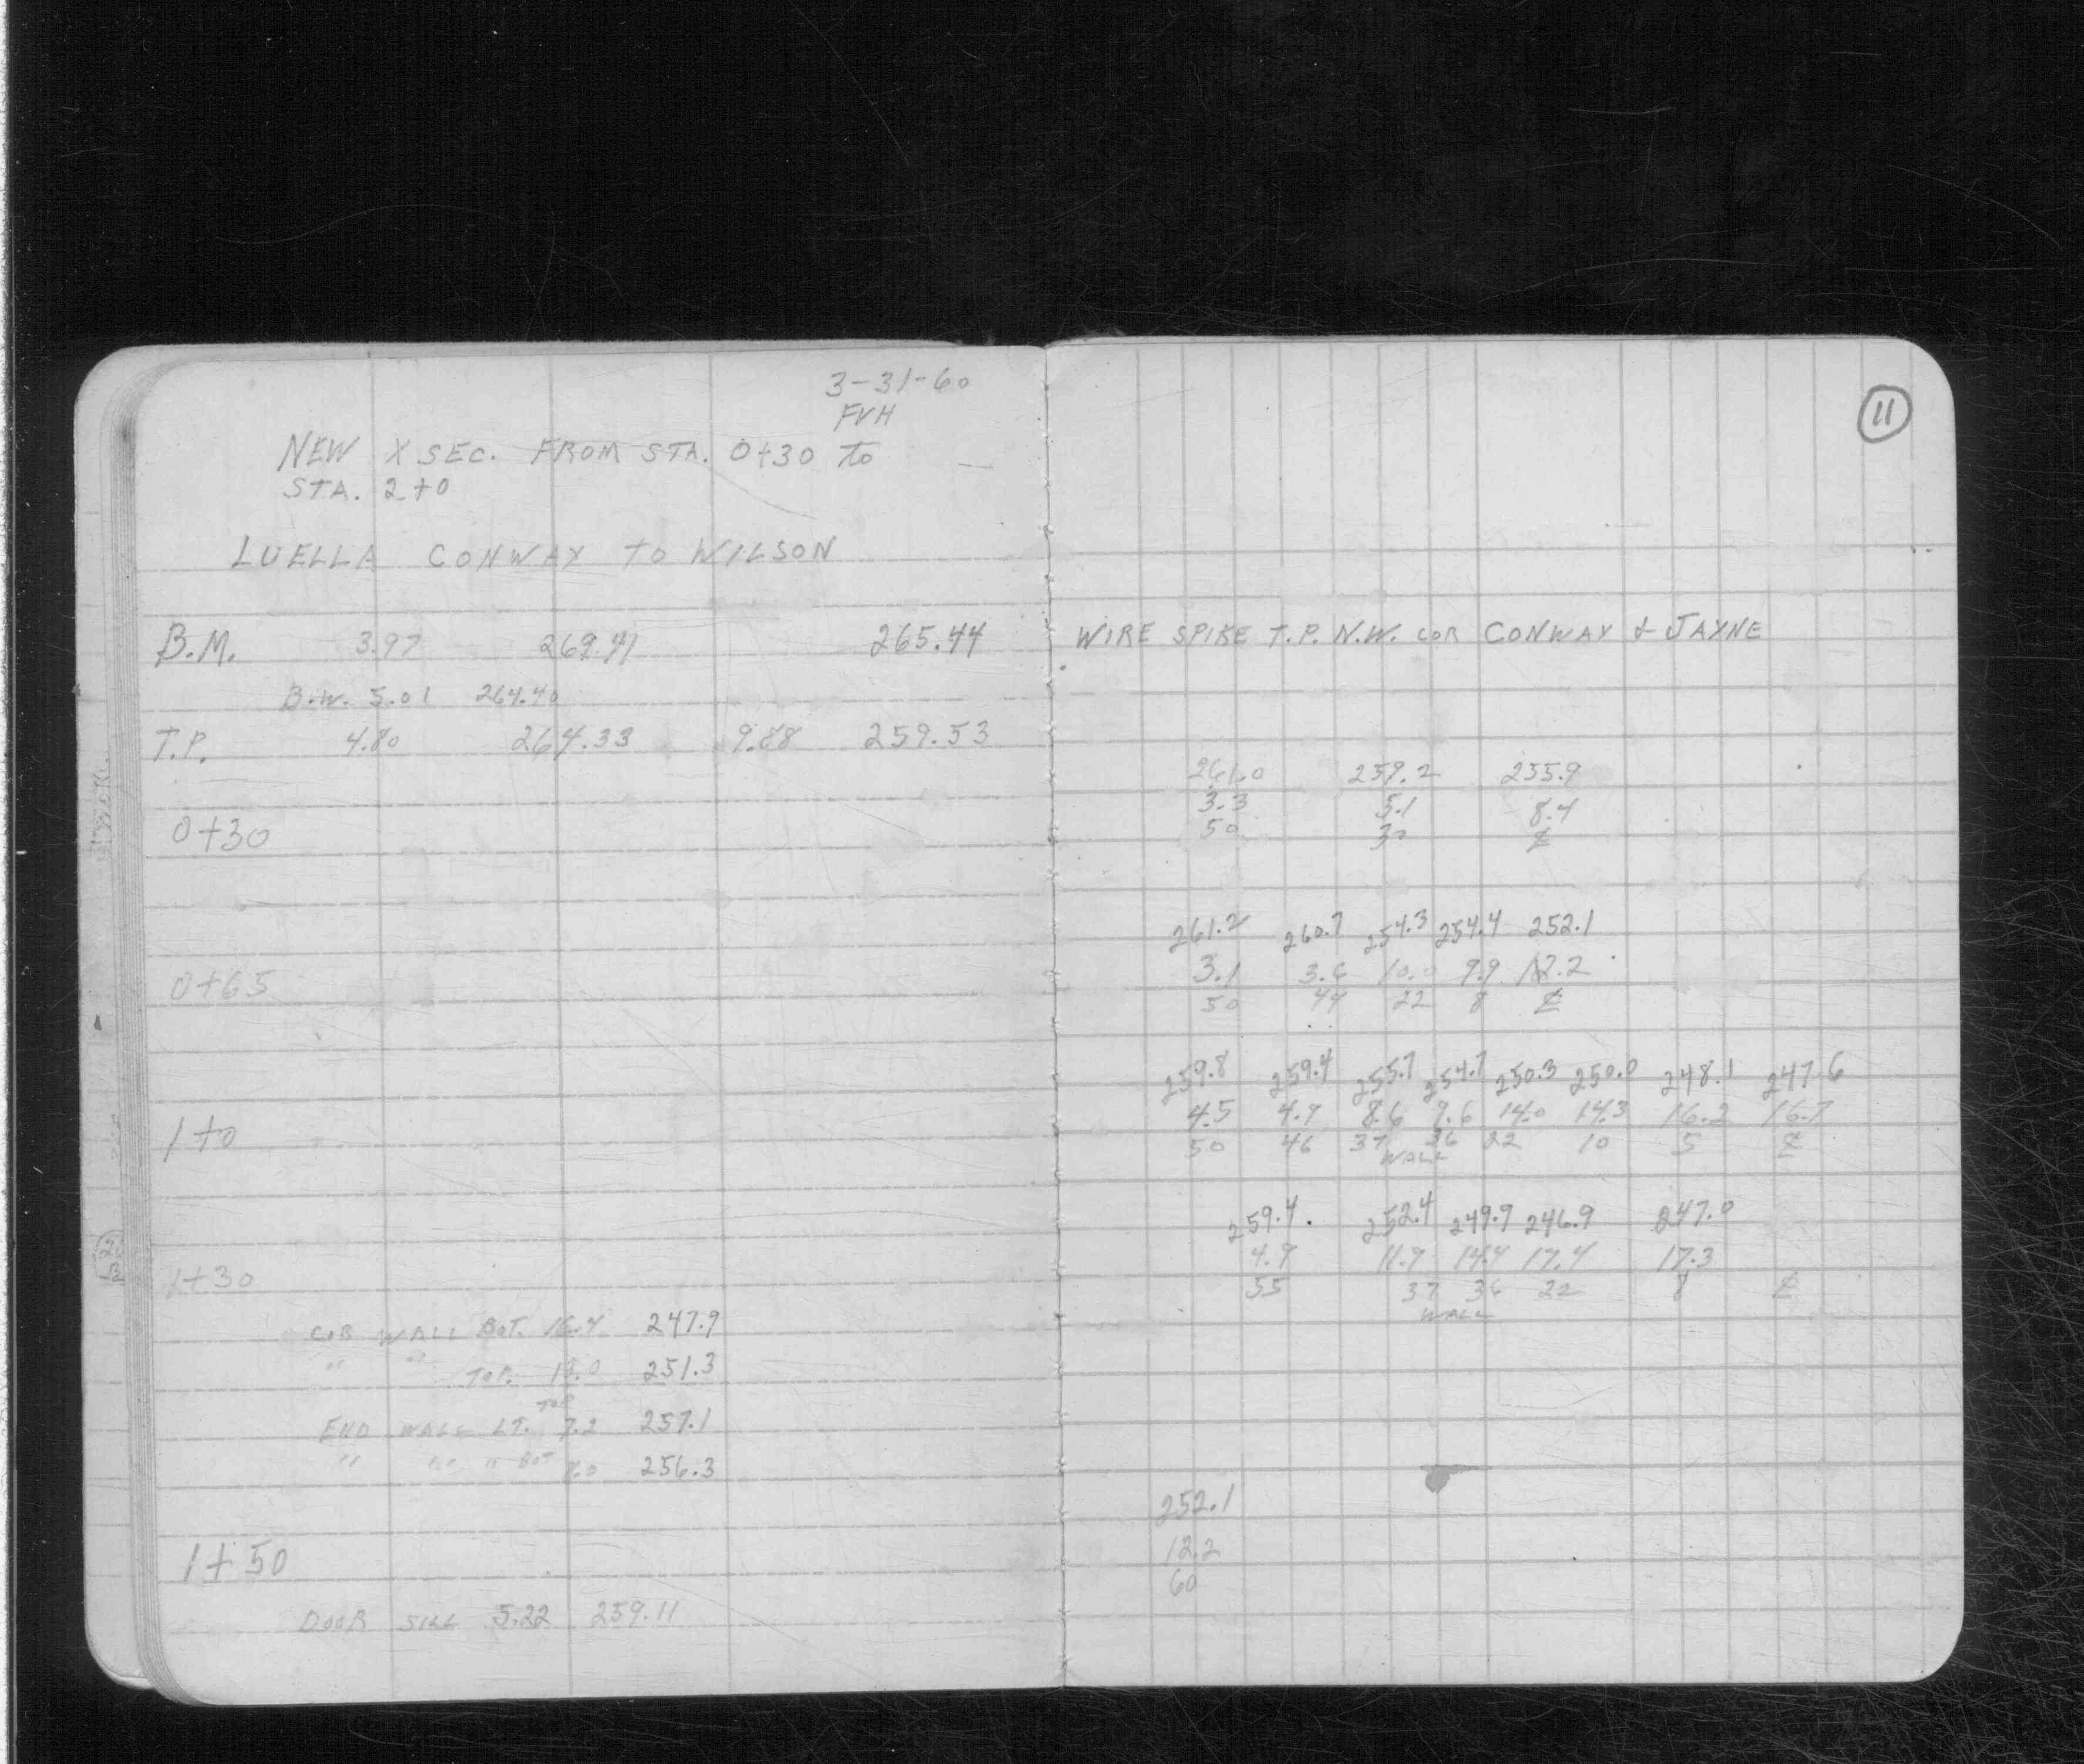 3-31-60
FVH
NEW X SEC. FROM STA. 0+30 to
STA. 2+0
LUELLA CONWAY TO WILSON
B.M. 3.97 269.41 265.44
B.W. 5.01 264.40
T.P. 4.80 264.33 9.88 259.53
0+30
0+65
1+0
1+30
COR WALL BOT. 16.4 247.9
" " TOP. 13.0 251.3
TOP
END WALL LT. 7.2 257.1
" " " BOT 8.0 256.3
1+50
DOOR SILL 5.22 259.11
11
WIRE SPIKE T.P. N.W. COR CONWAY & JAYNE
261.0 259.2 255.9
3.3 5.1 8.4
50 30 ℄
261.2 260.7 254.3 254.4 252.1
3.1 3.6 10.0 9.9 12.2
50 44 22 8 ℄
259.8 259.4 255.7 254.7 250.3 250.0 248.1 247.6
4.5 4.9 8.6 9.6 14.0 14.3 16.2 16.7
50 46 37 36 22 10 5 ℄
WALL
259.4 252.4 249.9 246.9 247.0
4.9 11.9 14.4 17.4 17.3
55 37 36 22 8 ℄
WALL
252.1
12.2
60